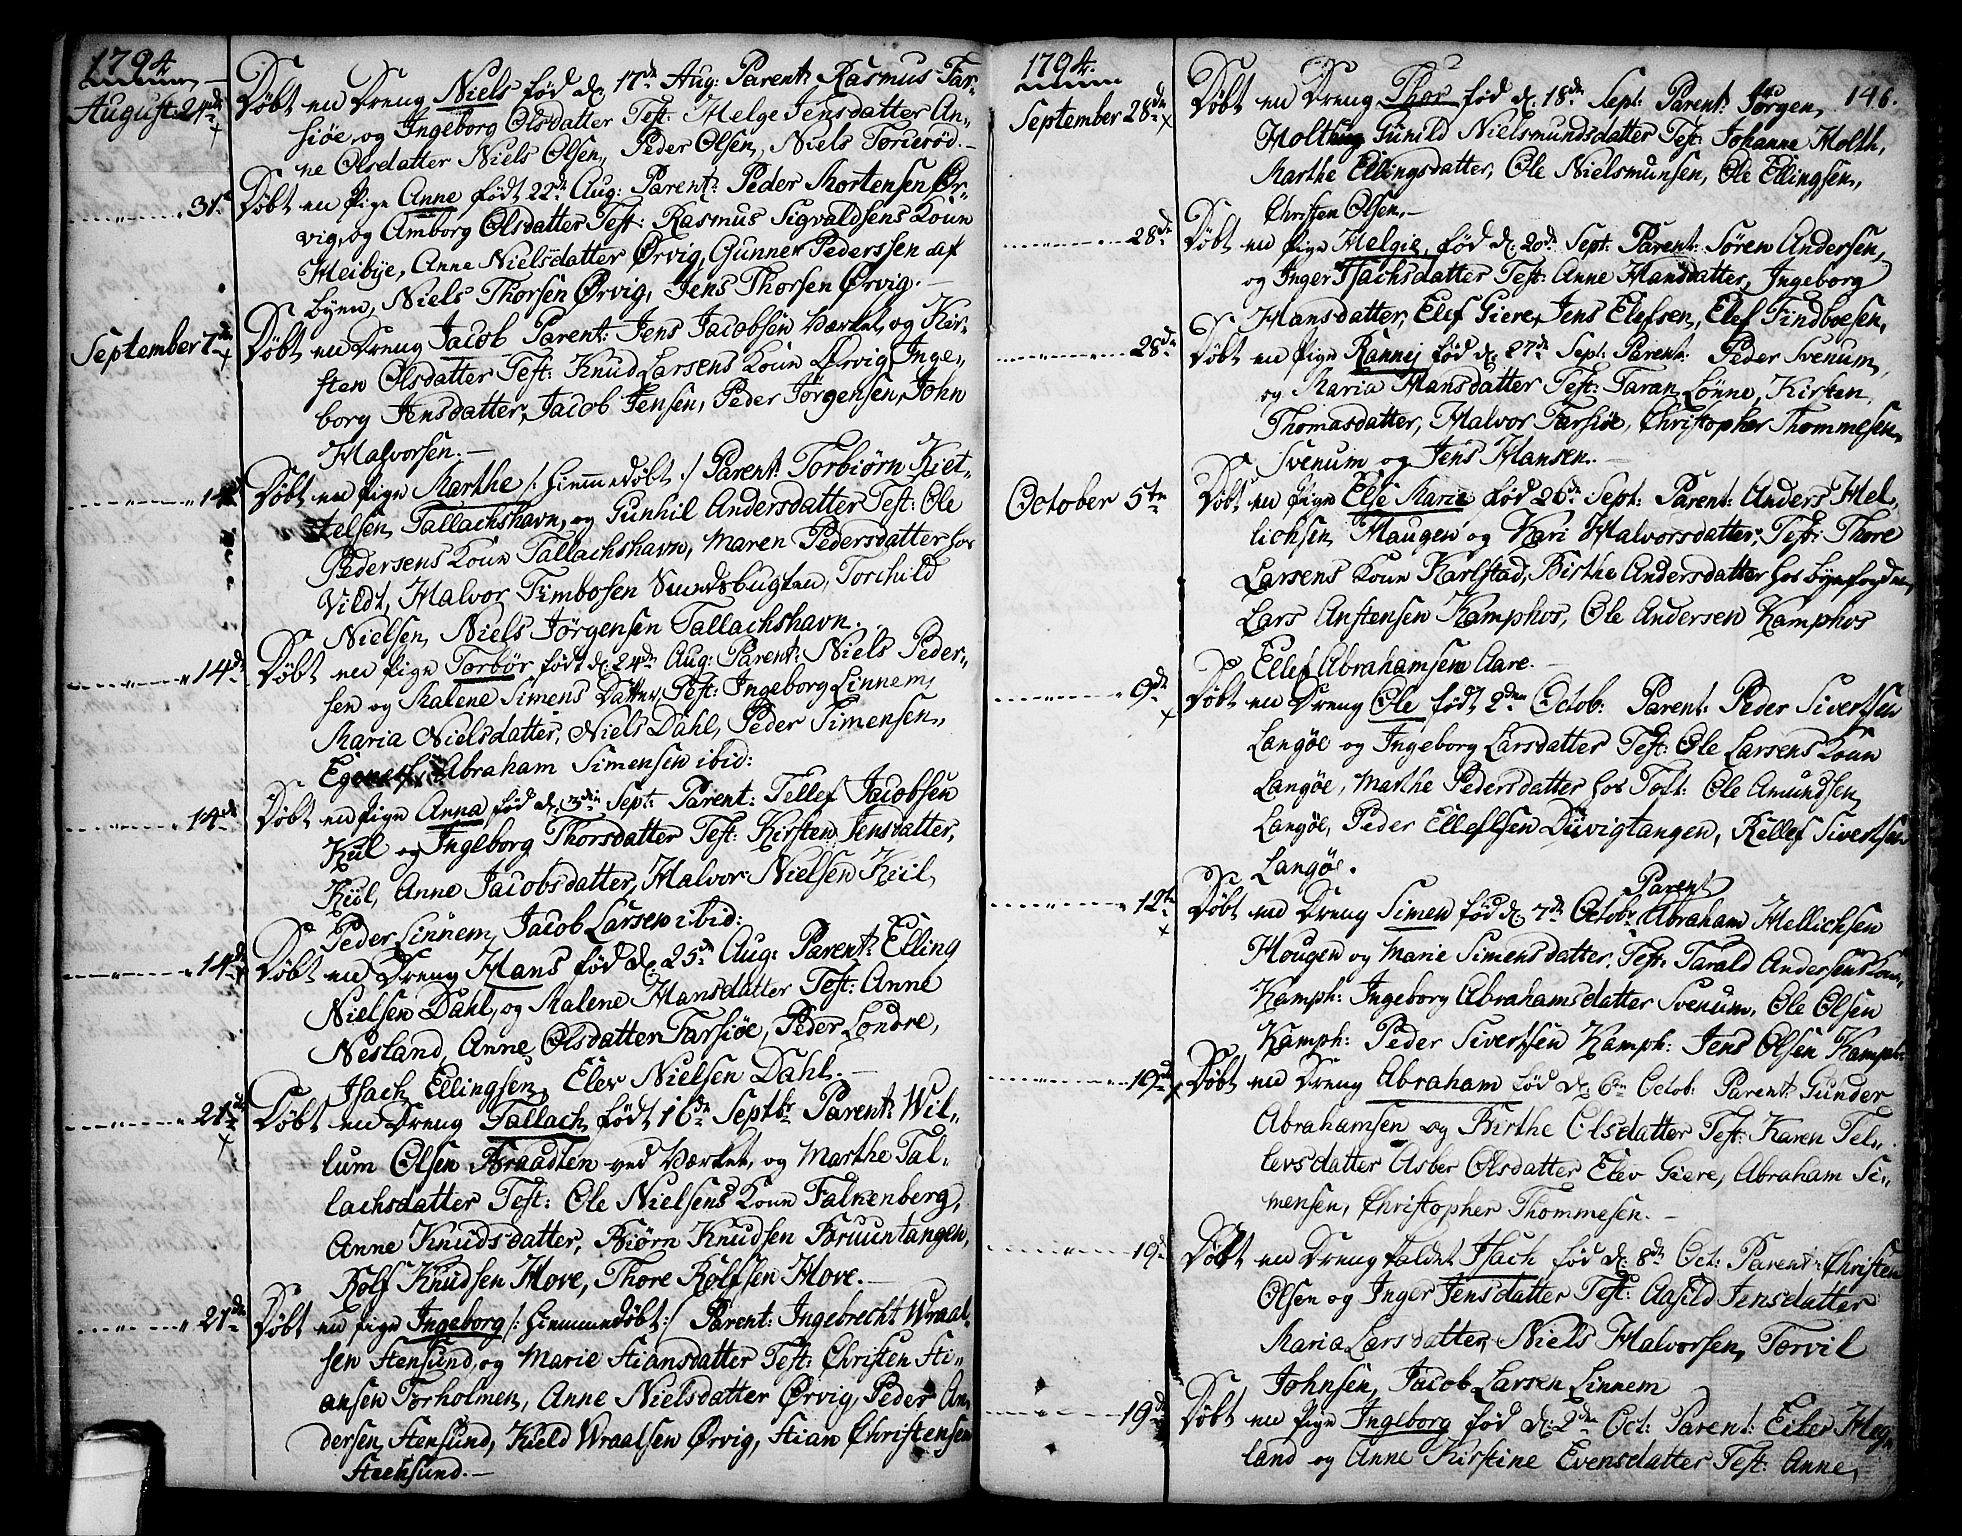 1794
August: 24de
Døbt en Dreng Niels fød d. 17de Aug: Parent: Rasmus Far-
siøe, og Ingeborg Olsdatter Test: Helge Jensdatter An-
ne Olsdatter Niels Olsen, Peder Olsen, Niels Torierød.
31te
Døbt en Pige Anne født 22de Aug: Parent: Peder Mortensen Ør-
vig, og Amborg Olsdatter Test: Rasmus Sigvaldsens Kone
Heibye, Anne Nielsdatter Ørvig, Gunner Pederssen af
byen, Niels Thorsen Ørvig, Jens Thorsen Ørvig.
September 7de
Døbt en Dreng Jacob Parent: Jens Jacobsen Værket, og Kir-
sten Olsdatter Test: Knud Larsens Kone Ørvig, Inge-
borg Jensdatter, Jacob Jensen, Peder Jørgensen, John
Halvorsen.
14de
Døbt en Pige Marthe /: hiemmedøbt :/ Parent: Torbiørn Kiet-
telsen, Tallachshavn, og Gunhil Andersdatter Test: Ole
Pedersens Kone Tallachshavn, Maren Pedersdatter hos
Vildt, Halvor Timbosen Sundsbugten, Torchild
Nielsen, Niels Jørgensen Tallachshavn.
14de
Døbt en Pige Torbør født d. 24de Aug: Parent: Niels Peder-
sen og Malene Simens Datter, Test: Ingeborg Linnem,
Maria Nielsdatter, Niels Dahl, Peder Simensen,
Abraham Simensen ibid:
14de
Døbt en Pige Anna fød d. 3die Sept: Parent: Tellef Jacobsen
Kiil og Ingeborg Thorsdatter Test: Kirsten Jensdatter,
Kiil, Anne Jacobsdatter, Halvor Nielsen Kiil,
Peder Linnem, Jacob Larsen ibid:
14de
Døbt en Dreng Hans fød d. 25de Aug: Parent: Elling
Nielsen Dahl, og Malene Hansdatter Test: Anne
Nesland, Anne Olsdatter Farsiøe, Peder Londre,
Isach Ellingsen, Elev Nielsen Dahl.
21de
Døbt en Dreng Tallach født 16de Septbr Parent: Wil-
lum Olsen Braadten ved Værket, og Marthe Tal-
lachsdatter Test: Ole Nielsens Kone Falkenberg,
Anne Knudsdatter, Biørn Knudsen Bruuntangen,
Rolf Knudsen Hove, Thore Rolfsen Hove.
21de
Døbt en Pige Ingeborg /: hiemmedøbt :/ Parent: Ingebrecht Wraal-
sen Stensund, og Marie Stiansdatter Test: Christen Sti-
ansen Torholmen, Anne Nielsdatter Ørvig, Peder An-
dersen Stensund, Kield Wraalsen Ørvig, Stian Christensen
Steensund.
1794.
146.
September 28de
Døbt en Dreng Thor fød d. 18de Sept: Parent: Jørgen
Holt og Gunild Nielsmundsdatter Test: Johanne Holth,
Marthe Ellingsdatter, Ole Nielsmunsen, Ole Ellingsen,
Christen Olsen.
28de
Døbt en Pige Helgie, fød d. 20de Sept: Parent: Søren Andersen,
og Inger Isachsdatter Test: Anne Hansdatter, Ingeborg
Hansdatter, Elef Giere, Jens Elefsen, Elef Findboesen,
28de
Døbt en Pige Rannej fød d. 27de Sept: Parent: Peder Svenum,
og Maria Hansdatter Test: Taran Lønne, Kirsten
Thomasdatter, Halvor Farsiøe, Christopher Thommesen
Svenum og Jens Hansen.
October 5te
Døbt en Pige Else Marie fød 26de Sept: Parent: Anders Mel-
lichsen, Haugen og Kari Halvorsdatter, Test: Thore
Larsens Kone Karlstad, Birthe Andersdatter hos Byefogden,
Lars Anstensen Kamphos, Ole Andersen Kamphos
Ellef Abrahamsen Aare.
9de
Døbt en Dreng Ole født 2den Octob: Parent: Peder Sivertsen
Langøe og Ingeborg Larsdatter Test: Ole Larsens Kone
Langøe, Marthe Pedersdatter hos Toft: Ole Amundsen
Langøe, Peder Ellefsen Düvigtangen, Kellef Sivertsen
Langøe.
12te
Døbt en Dreng Simen fød d. 7de Octobr Parent: Abraham Mellichsen
Hougen og Marie Simensdatter, Test: Tarald Andersens Kone,
Kamph: Ingeborg Abrahamsdatter Svenum, Ole Olsen
Kamph: Peder Sivertsen Kamph: Jens Olsen Kamph:
19de
Døbt en Dreng Abraham fød d. 6te Octob: Parent: Gunder
Abrahamsen og Birthe Olsdatter Test: Karen Tel-
levsdatter Asber Olsdatter Elev Giere, Abraham Si-
mensen, Christopher Thommesen.
19de
Døbt en Dreng kaldet Isach fød d. 8de Oct: Parent: Christen
Olsen og Inger Jensdatter Test: Aasild Jensdatter
Maria Larsdatter, Niels Halvorsen, Torvil
Johnsen, Jacob Larsen Linnem
19de
Døbt en Pige Ingeborg fød d. 2den Oct: Parent: Eiler Heg-
land og Anne Kirstine Evensdatter Test: Anne,